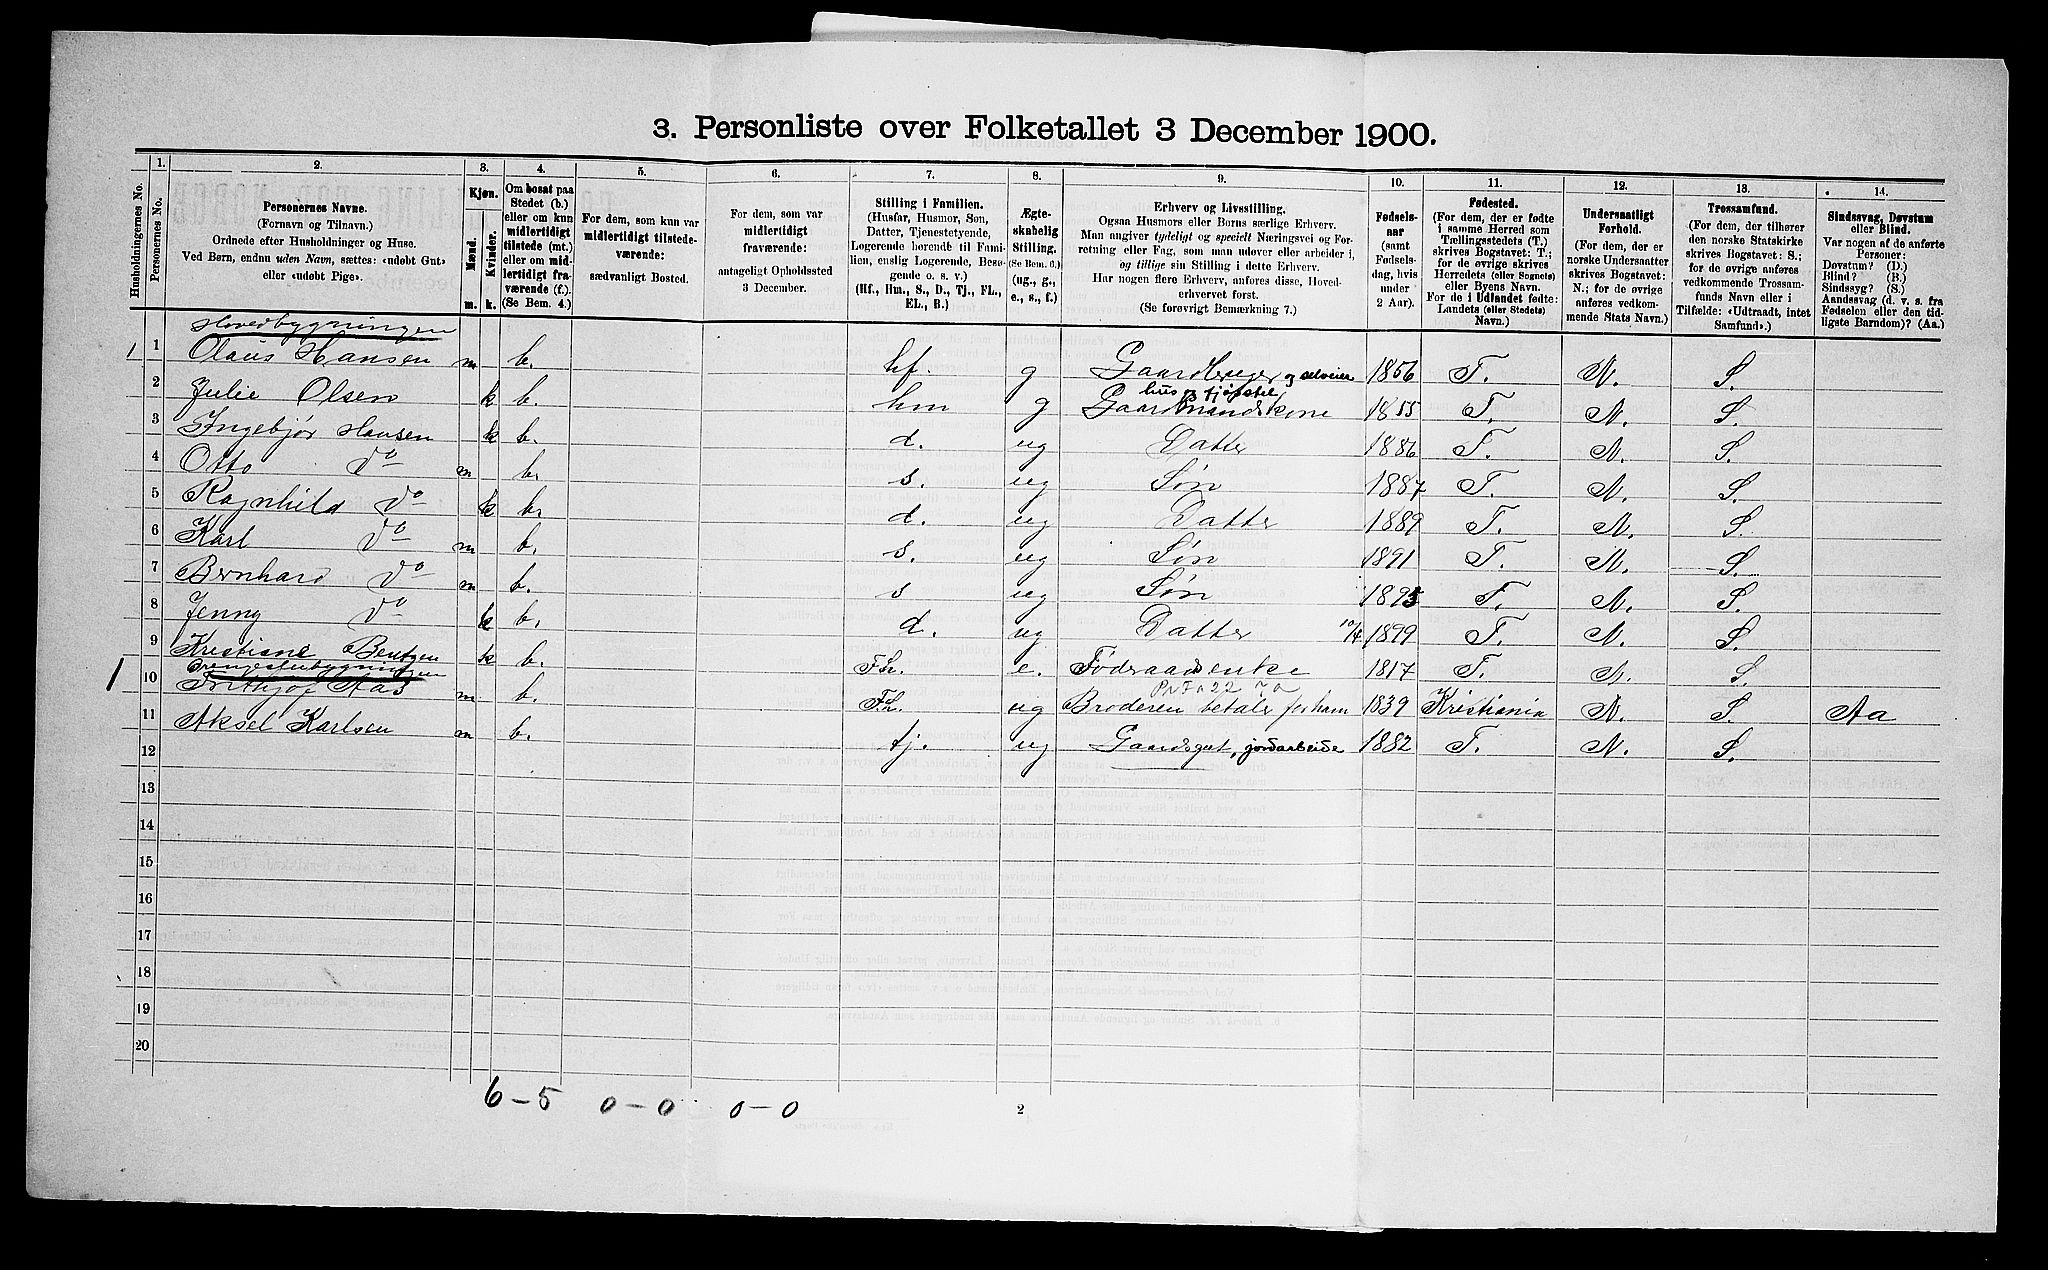 3. Personliste over Folketallet 3 December 1900.
Husholdningernes No.
1.
Personernes No.
2.
Personernes Navne.
(Fornavn og Tilnavn.)
Ordnede efter Husholdninger og Huse.
Ved Børn, endnu uden Navn, sættes: «udøbt Gut»
eller «udøbt Pige».
3.
Kjøn.
Mænd.
Kvinder.
m. k.
4.
Om bosat paa
Stedet (b.)
eller om kun
midlertidigt
tilstede (mt.)
eller om mid-
lertidigt fra-
værende (f.).
(Se Bem. 4.)
5.
For dem, som kun var
midlertidigt tilstede-
værende:
sædvanligt Bosted.
6.
For dem, som var
midlertidigt
fraværende:
antageligt Opholdssted
3 December.
7.
Stilling i Familien.
(Husfar, Husmor, Søn,
Datter, Tjenestetyende,
Logerende hørende til Fami-
lien, enslig Logerende, Besø-
gende o. s. v.)
(Hf., Hm., S., D., Tj., FL.,
EL., B.)
8.
Ægte-
skabelig
Stilling.
(Se Bem. 6.)
(ug., g.,
e., s., f.)
9.
Erhverv og Livsstilling.
Ogsaa Husmors eller Børns særlige Erhverv.
Man angiver tydeligt og specielt Næringsvei og For-
retning eller Fag, som man udøver eller arbeider i,
og tillige sin Stilling i dette Erhverv.
Har nogen flere Erhverv, anføres disse, Hoved-
erhvervet først.
(Se forøvrigt Bemærkning 7.)
10.
Fødsels-
aar
(samt
Fødsels-
dag, hvis
under
2 Aar).
11.
Fødested.
(For dem, der er fødte
i samme Herred som
Tællingsstedets (T.)
skrives Bogstavet: T.;
for de øvrige skrives
Herredets (eller Sognets)
eller Byens Navn.
For de i Udlandet fødte:
Landets (eller Stedets)
Navn.)
12.
Undersaatligt
Forhold.
(For dem, der er
norske Undersaatter
skrives Bogstavet:
N.; for de øvrige
anføres vedkom-
mende Stats Navn.)
13.
Trossamfund.
(For dem, der tilhører
den norske Statskirke
skrives Bogstavet: S.;
for de øvrige anføres
vedkommende Trossam-
funds Navn eller i
Tilfælde: «Udtraadt, intet
Samfund».)
14.
Sindssvag, Døvstum
eller Blind.
Var nogen af de anførte
Personer:
Døvstum? (D.)
Blind? (B.)
Sindssyg? (S.)
Aandssvag (d. v. s. fra
Fødselen eller den tid-
ligste Barndom)? (Aa.)
Hovedbygningen
1 1 Olaus Hansen m b. hf. g Gaardbruger og selveier 1856 T. N. S.
hus og fjøsstel
2 Julie Olsen k b. hm g Gaardmandskone 1855 T. N. S.
3 Ingebjør Hansen k b. d. ug Datter 1886 T. N. S.
4 Otto Do m b. s. ug Søn 1887 T. N. S.
5 Ragnhild Do k b. d. ug Datter 1889 T. N. S.
6 Karl Do m b. s. ug Søn 1891 T. N. S.
7 Bernhard Do m b. s ug Søn 1895 T. N. S.
8 Jenny Do k b. d. ug Datter 10/4 1899 T. N. S.
9 Kristiane Bentzen k b. FL. e. Føderaadsenke 1817 T. N. S.
1 10 Frithjof Aas m b. FL. ug Broderen betaler for ham 1839 Kristiania N. S. Aa
11 Aksel Karlsen m b. tj. ug Gaardsgut, jordarbeide 1882 T. N. S.
12
13
14
15
16
17
18
19
20
6 – 5 0 – 0 0 – 0
2